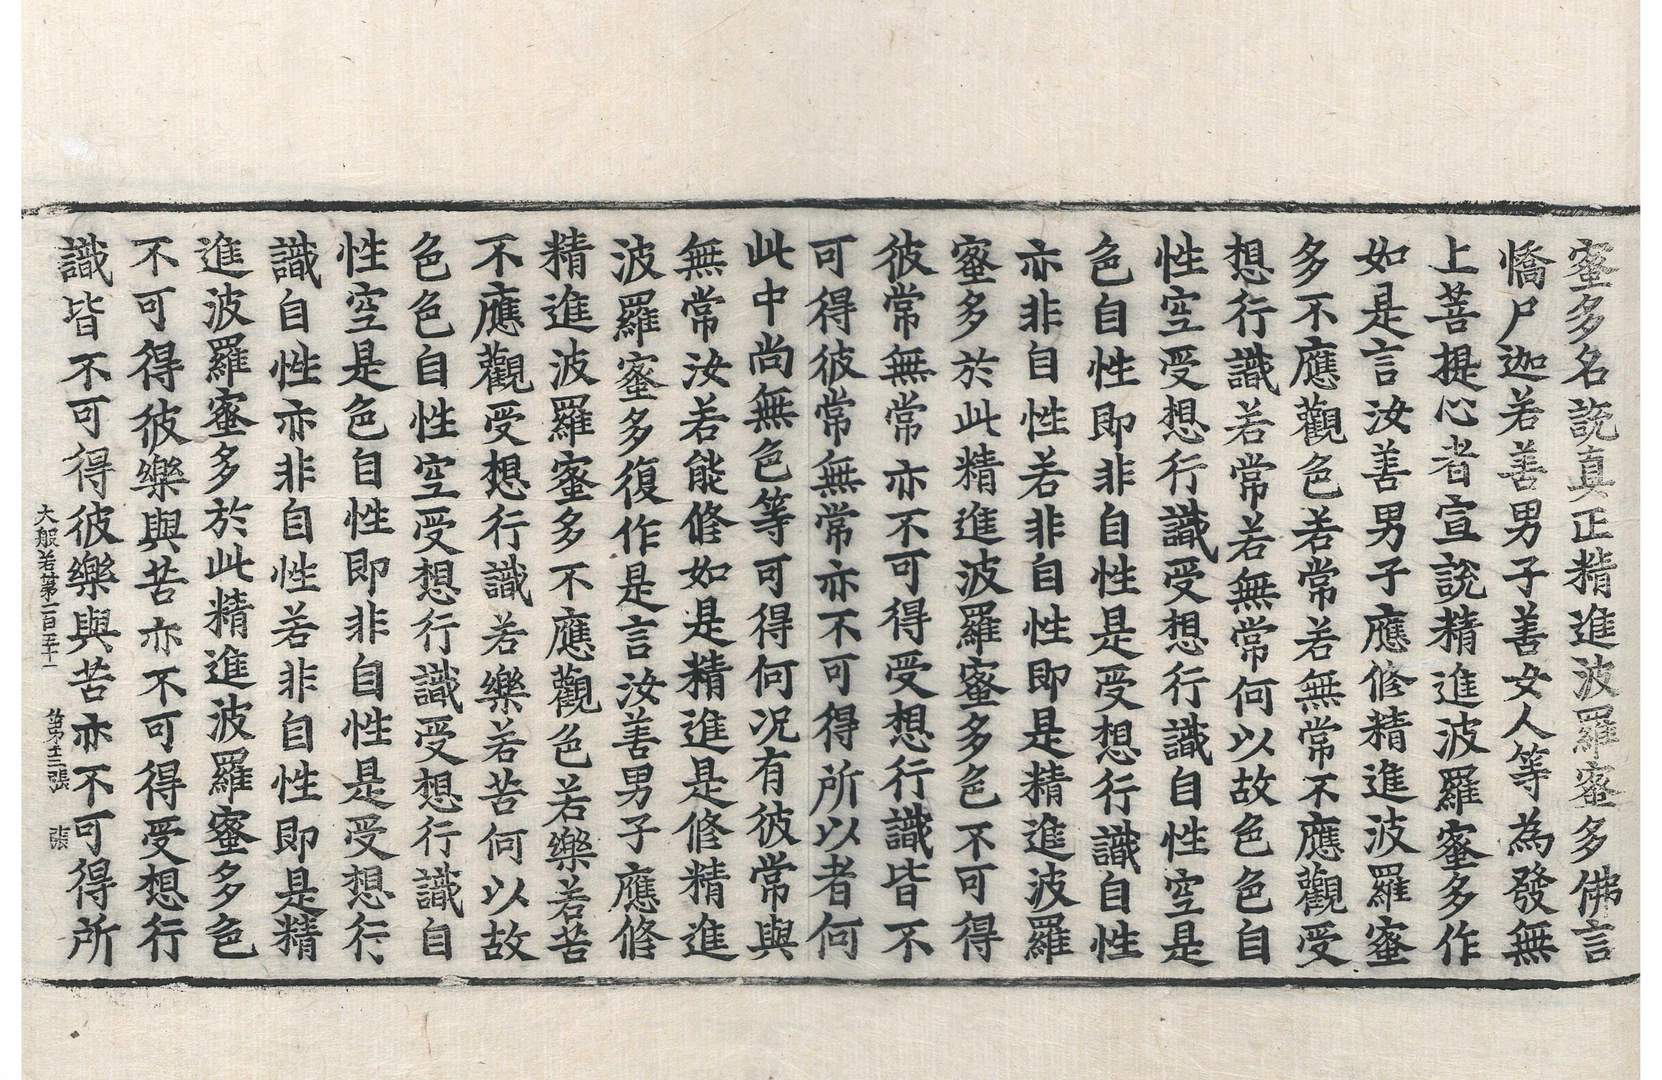 蜜多名說真正精進波羅蜜多佛言
憍尸迦若善男子善女人等為發無
上菩提心者宣說精進波羅蜜多作
如是言汝善男子應修精進波羅蜜
多不應觀色若常若無常不應觀受
想行識若常若無常何以故色色自
性空受想行識受想行識自性空是
色自性即非自性是受想行識自性
亦非自性若非自性即是精進波羅
蜜多於此精進波羅蜜多色不可得
彼常無常亦不可得受想行識皆不
可得彼常無常亦不可得所以者何
此中尚無色等可得何況有彼常與
無常汝若能修如是精進是修精進
波羅蜜多復作是言汝善男子應修
精進波羅蜜多不應觀色若樂若苦
不應觀受想行識若樂若苦何以故
色色自性空受想行識受想行識自
性空是色自性即非自性是受想行
識自性亦非自性若非自性即是精
進波羅蜜多於此精進波羅蜜多色
不可得彼樂與苦亦不可得受想行
識皆不可得彼樂與苦亦不可得所
大般若第一百五十一 第十三張 張